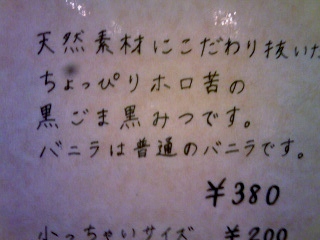 天然素材にこだわり抜いた
ちょっぴりホロ苦の
黒ごま黒みつです。
バニラは普通のバニラです。
¥380
小っちゃいサイズ ¥200